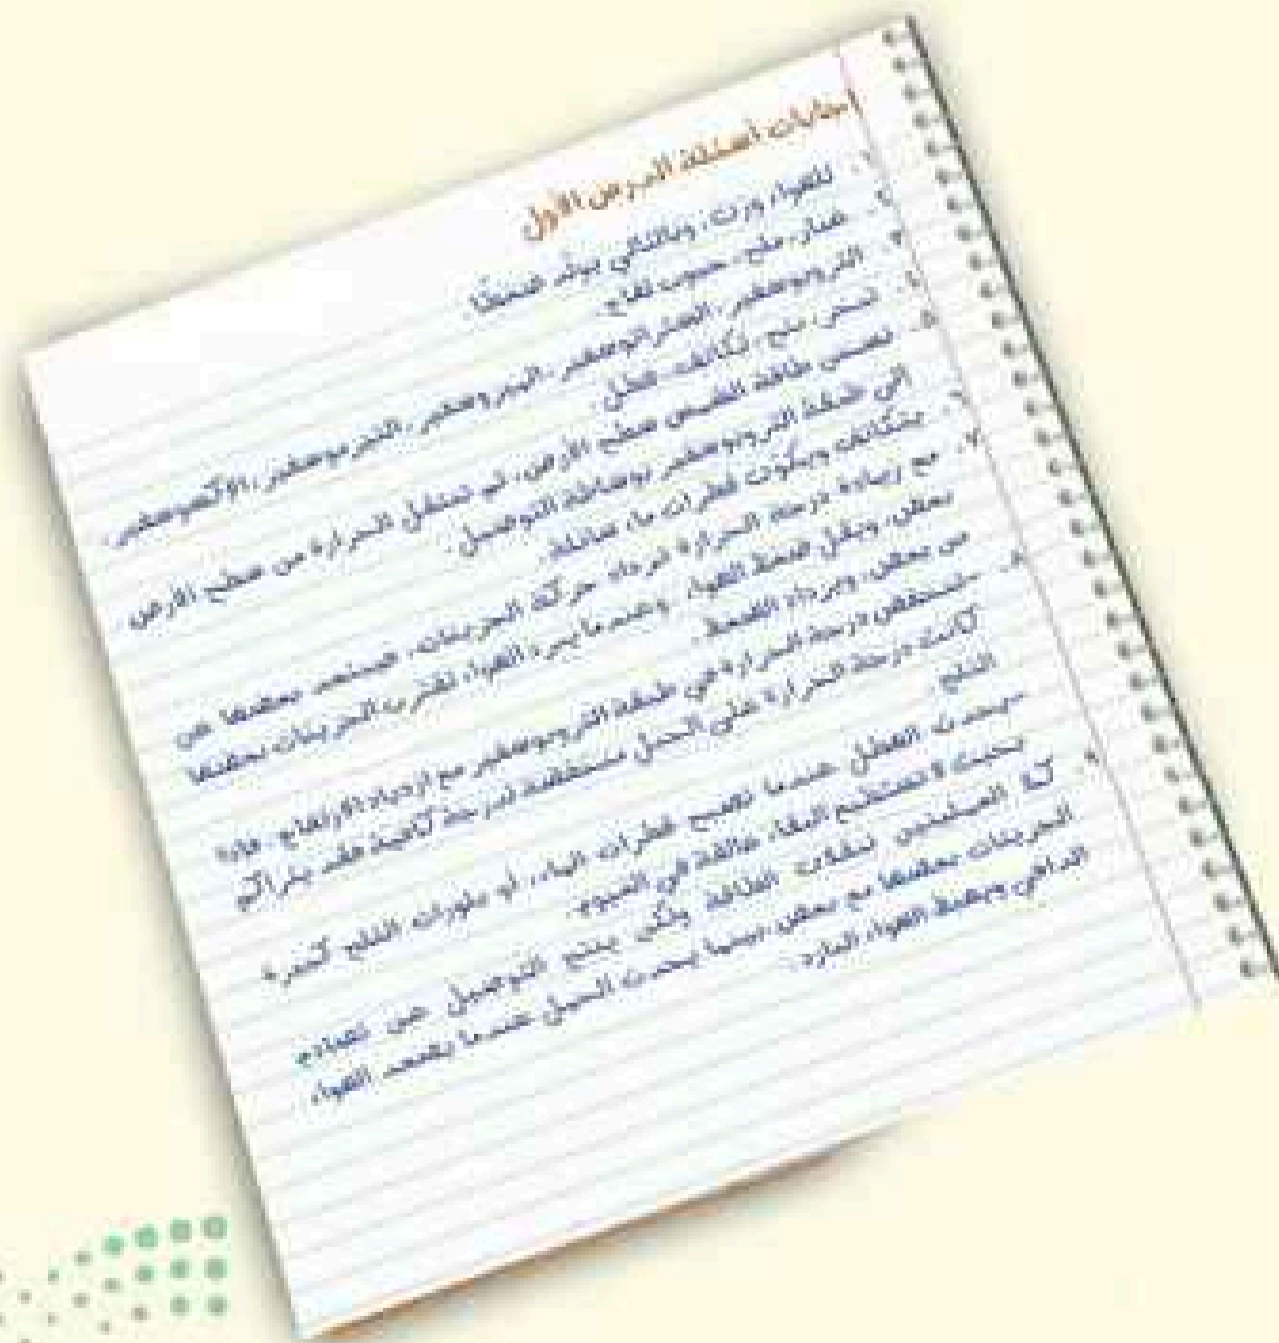 إجابات أسئلة الدرس الأول
١. للهواء وزن، وبالتالي يولد ضغطًا.
٢. غبار، ملح، حبوب لقاح.
٣. التروبوسفير، الستراتوسفير، الميزوسفير، الثرموسفير، الإكسوسفير.
٤. تبخر، نتح، تكاثف، هطل.
٥. تسخن طاقة الشمس سطح الأرض، ثم تنتقل الحرارة من سطح الأرض
إلى طبقة التروبوسفير بوساطة التوصيل.
٦. يتكاثف ويكوّن قطرات ماء سائلة.
٧. مع زيادة درجة الحرارة تزداد حركة الجزيئات، فيبتعد بعضها عن
بعض، ويقل ضغط الهواء. وعندما يبرد الهواء تقترب الجزيئات بعضها
من بعض، ويزداد الضغط.
٨. -تنخفض درجة الحرارة في طبقة التروبوسفير مع ازدياد الارتفاع. فإذا
كانت درجة الحرارة على الجبل منخفضة لدرجة كافية فقد يتراكم
الثلج.
-يحدث الهطل عندما تصبح قطرات الماء، أو بلورات الثلج كبيرة
بحيث لا تستطيع البقاء عالقة في الغيوم.
٩. كلا العمليتين تنقلان الطاقة ولكن ينتج التوصيل عن تصادم
الجزيئات بعضها مع بعض بينما يحدث الحمل عندما يصعد الهواء
الدافئ ويهبط الهواء البارد.